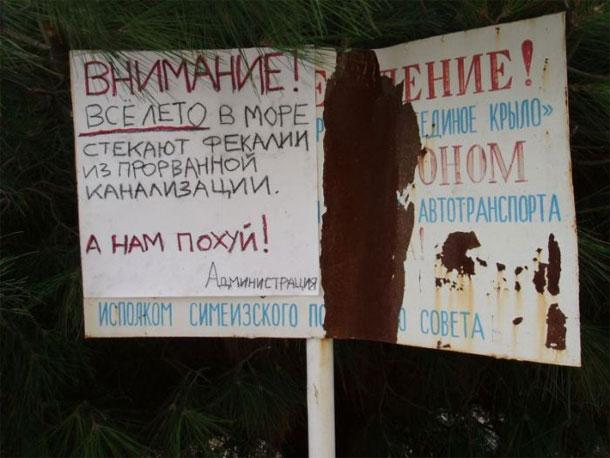 ВНИМАНИЕ!
ВСЁ ЛЕТО В МОРЕ
СТЕКАЮТ ФЕКАЛИИ
ИЗ ПРОРВАННОЙ
КАНАЛИЗАЦИИ.
А НАМ ПОХУЙ!
АДМИНИСТРАЦИЯ
ЛЕНИЕ!
ЕДИНОЕ КРЫЛО»
ОНОМ
АВТОТРАНСПОРТА
ИСПОЛКОМ СИМЕИЗСКОГО ПО О СОВЕТА